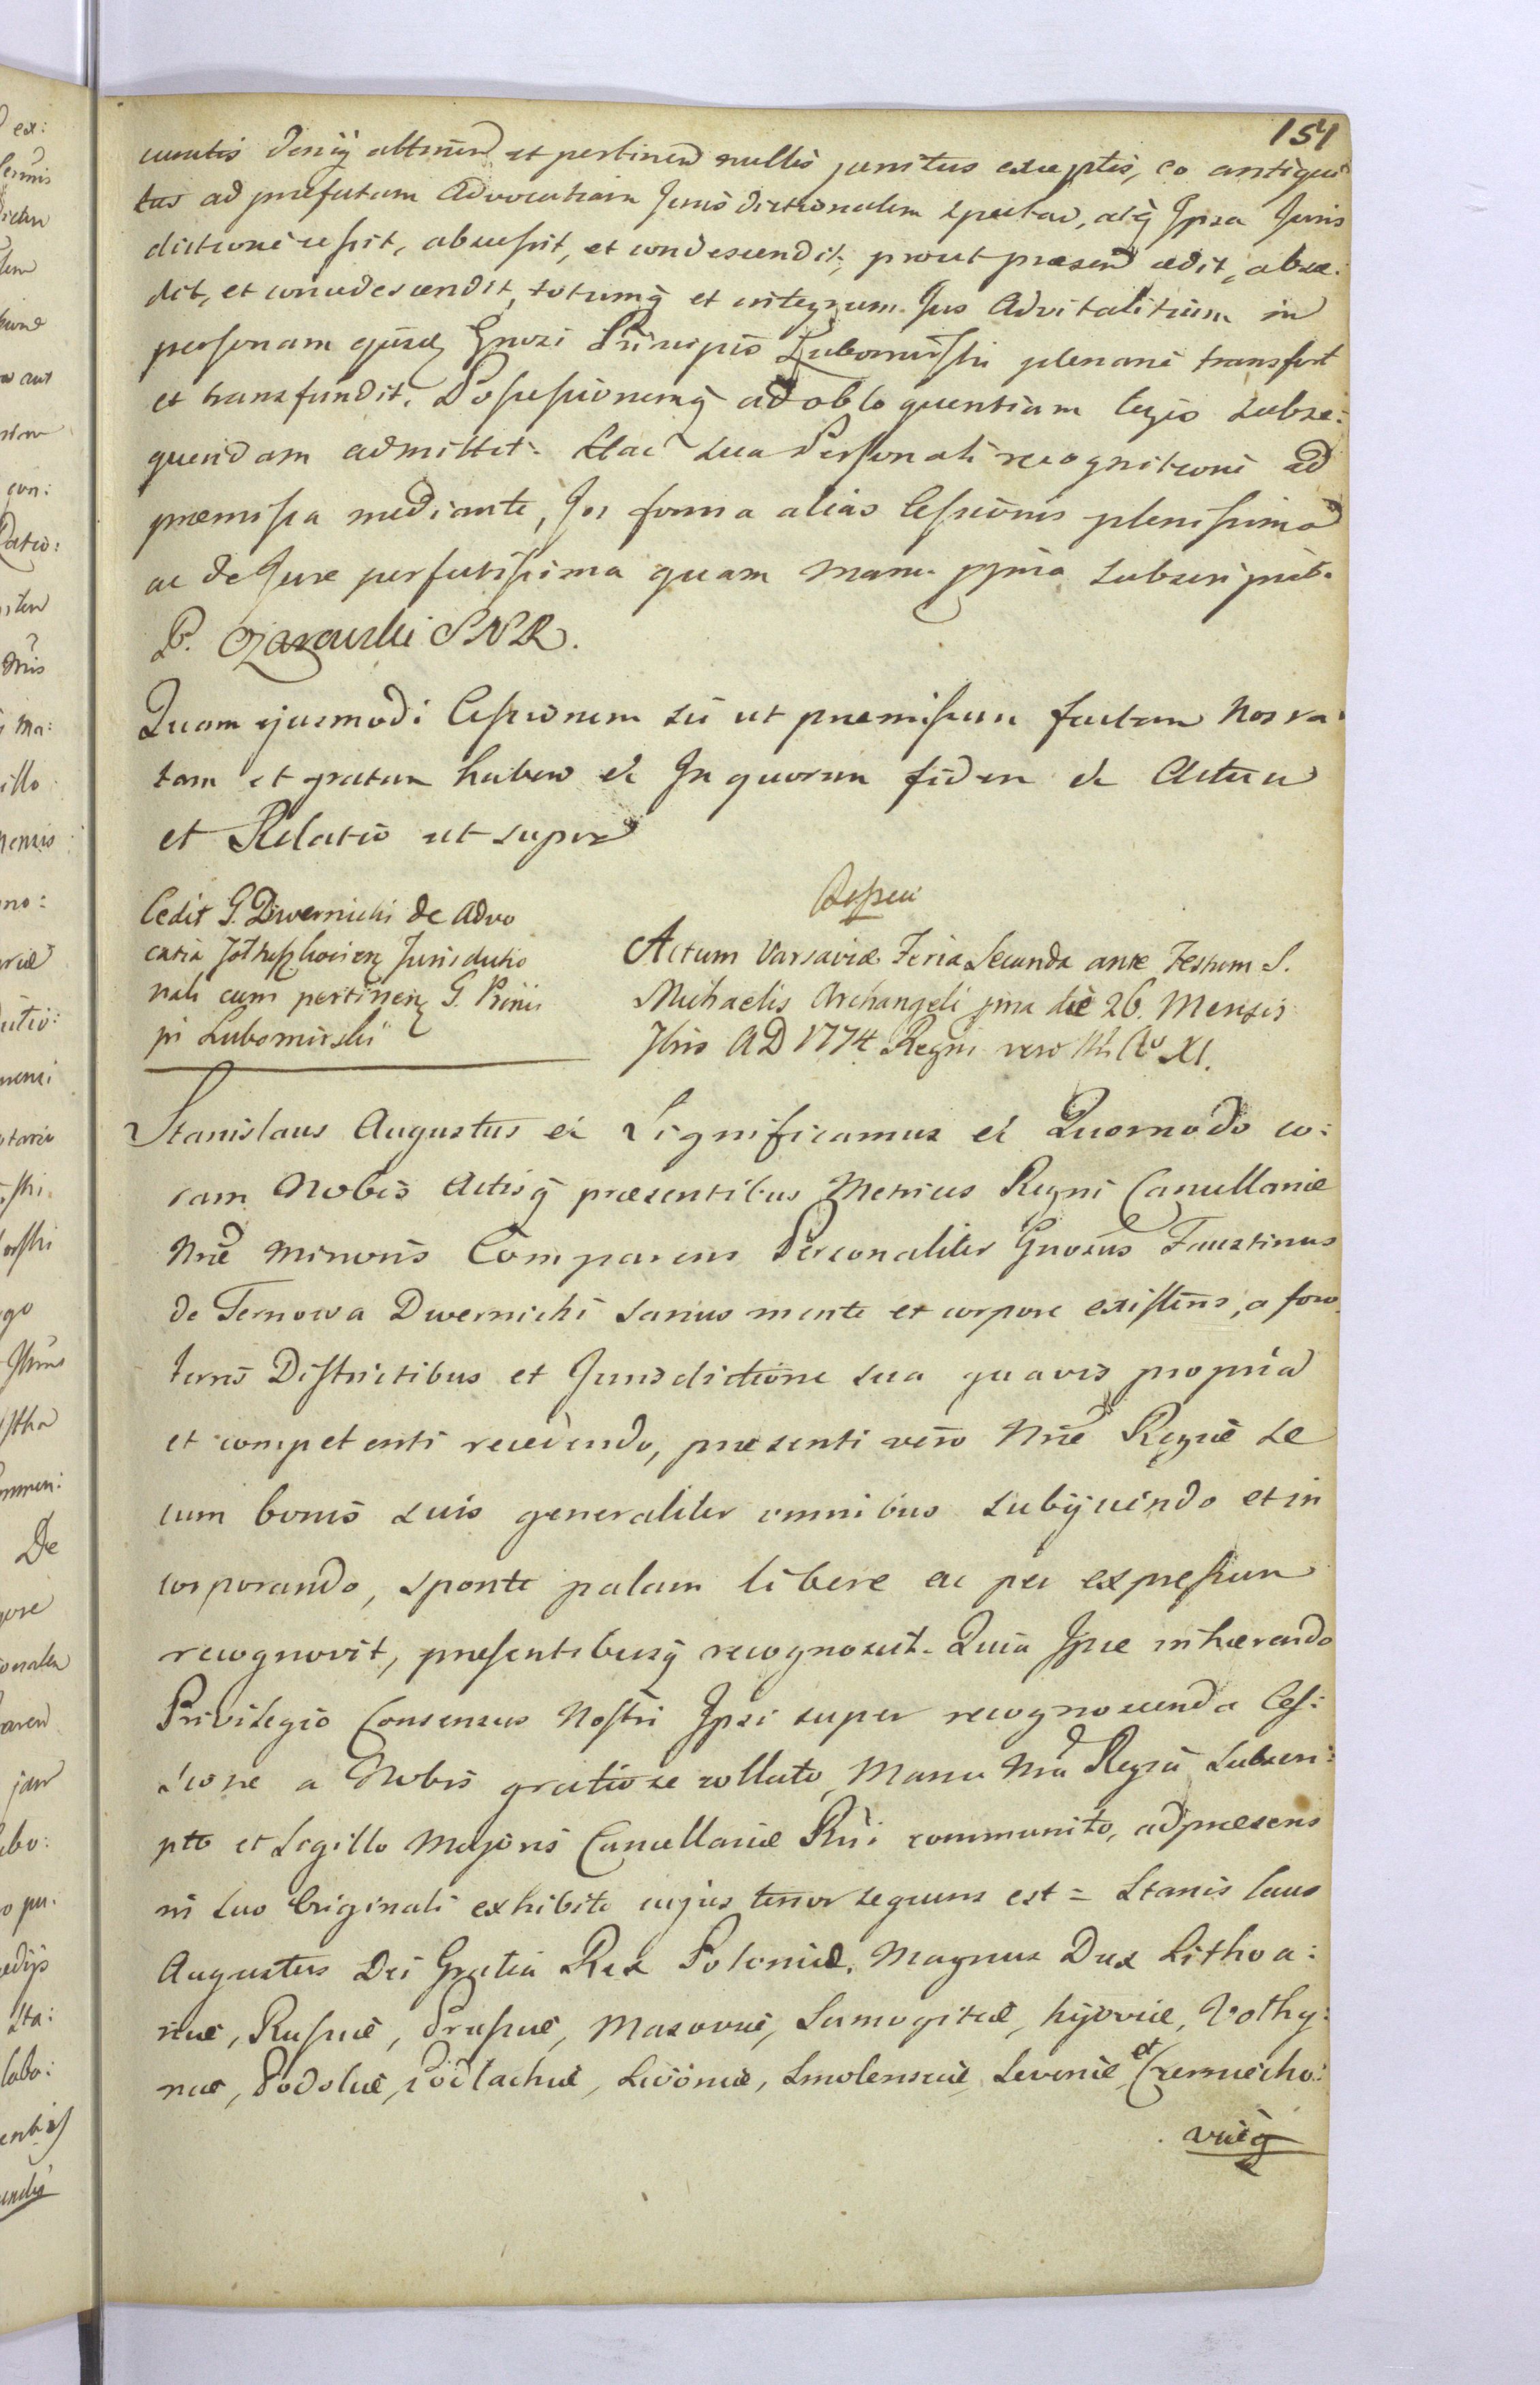 151
cunctis deniq̃ attinen et pertinen nullis penitus exceptis, eo antiqui
tus ad præfatam Advocatiam Jurisdictionalem spectan, atq̃ Ipsa Juris
dictione cessit, abscessit, et condescendit, prout præsen cedit, absce:
dit, et concedescendit, totumq̃ et integrum Jus Advitalitium in
personam ejusd Gnosi Principis Lubomirski plenarie transfert
et transfundit. Possessionemq̃ ad obloquentiam legis subse:
quendam admittet. Hac sua Personali recognitione ad
præmissa mediante, In forma alias Cessionis plenissima
ac de Jure perfectissima quam manu ppria subscripsit.
P. Ożarowski SNR.
Quam ejusmodi Cessionem sic ut præmissum factam Nos ra:
tam et gratam haben &c In quorum fidem &c Actum
et Relatio ut supra
Cedit G. Dwernicki de Advo
catia Jurisdictio
nali cum pertinen G. Princi
pi Lubomirski
Actum Varsaviæ Feria Secunda ante Festum S.
Michaelis Archangeli pma die 26. Mensis
7bris AD 1774 Regni vero Ao XI.
Stanislaus Augustus &c Significamus &c Quomodo co:
ram Nobis Actisq̃ præsentibus Metrices Regni Cancellariæ
Nræ Minoris Comparens Personaliter Gnosus Faustinus
de Ternowa Dwernicki sanus mente et corpore existens, a foro
terris Districtibus et Jurisdictione sua quavis propria
et competenti recedendo, præsenti vero Nræ Regiæ se
cum bonis suis generaliter omnibus subijciendo et in
corporando, sponte palam libere ac per expressum
recognovit, præsentibusq̃ recognoscit. Quia Ipse inhærendo
Privilegio Consensus Nostri Ipsi super recognoscenda Ces:
sione a Nobis gratiose collato, Manu Nra Regia subscri:
pto et Sigillo Majoris Cancellariæ Rni communito, ad præsens
in suo Originali exhibito cujus tenor sequens est = Stanislaus
Augustus Dei Gratia Rex Poloniæ, Magnus Dux Lithva:
niæ, Russiæ, Prussiæ, Masoviæ, Samogitiæ, Kijoviæ, Volhy:
niæ, Podoliæ, Podlachiæ, Livoniæ, Smolensciæ, Severiæ et Czerniecho:
viæq̃